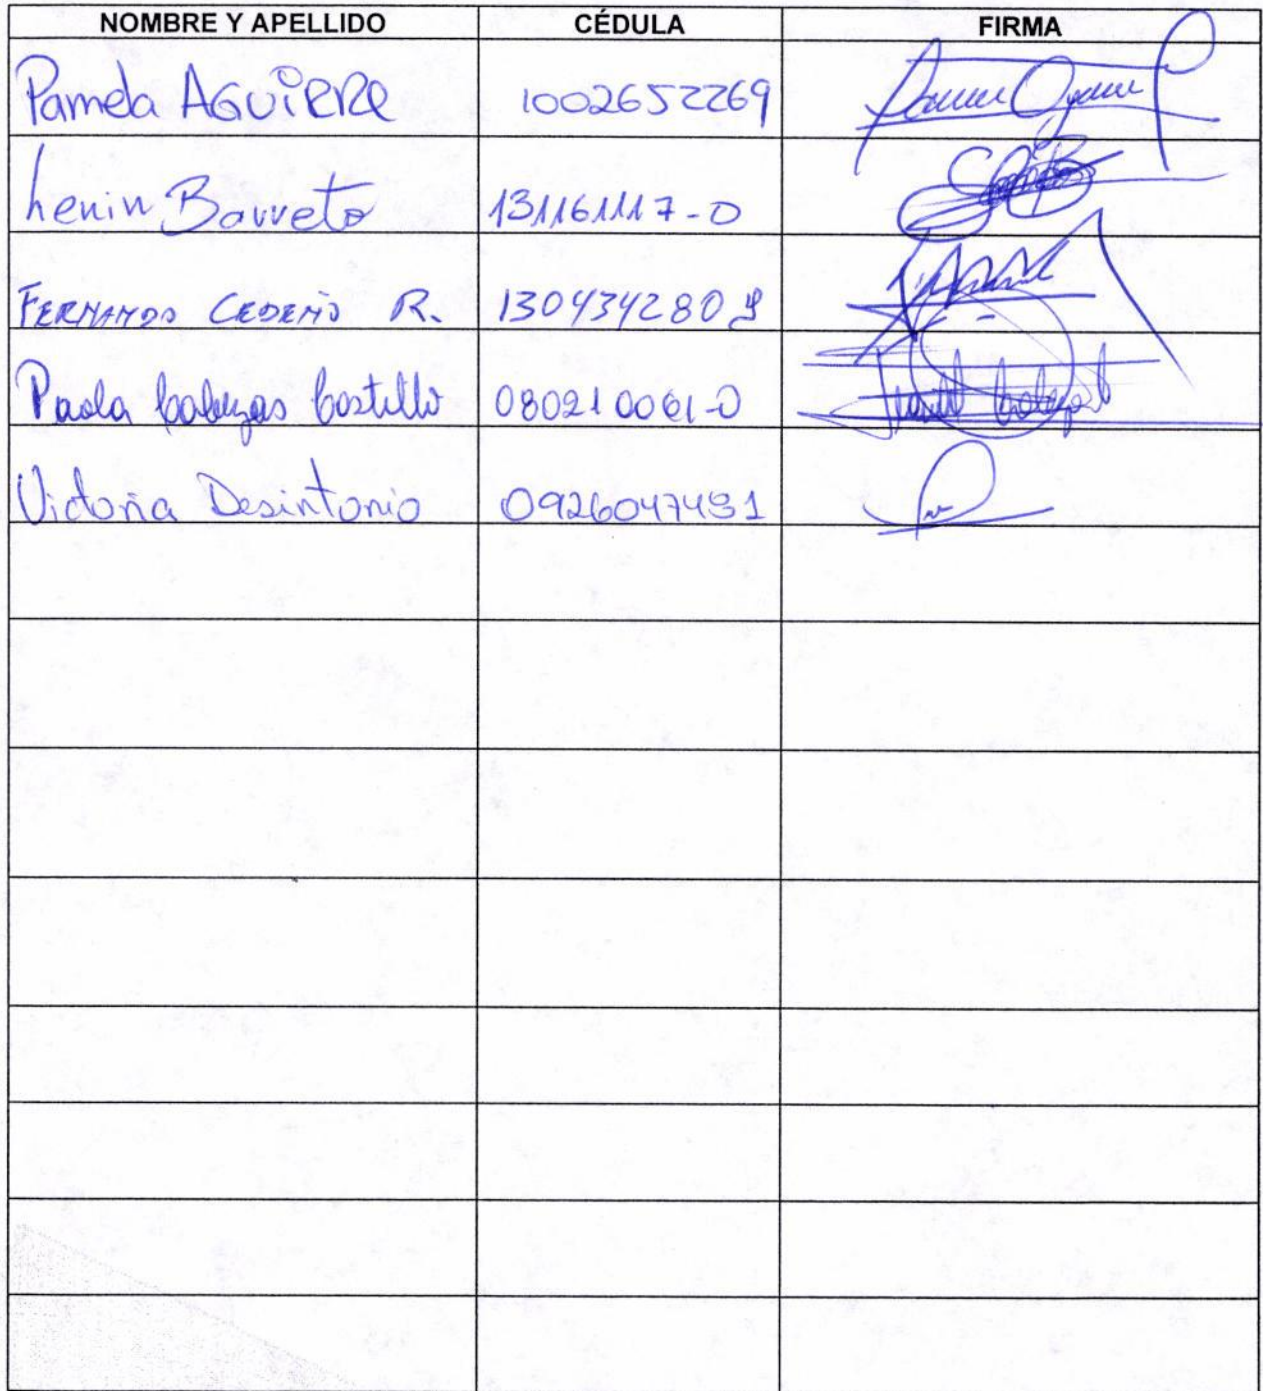 NOMBRE Y APELLIDO CÉDULA FIRMA
Pamela AGUiRRe 1002652269
Lenin Barreto 131161117-0
FERNANDO CEDEÑO R. 130434280
Paola Cabezas Castillo 080210061-0
Victoria Desintonio 0926047481